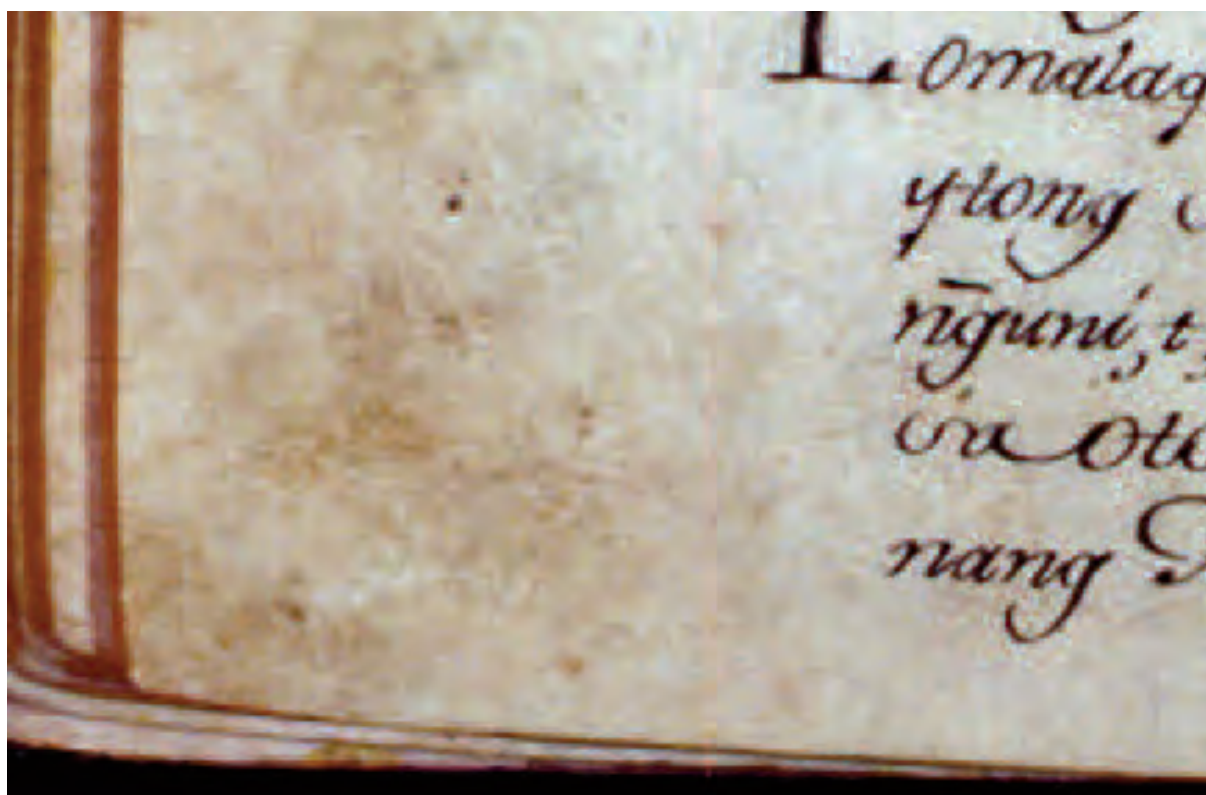 Lomalag
ytong
ñguni, t,
sa oto
nang